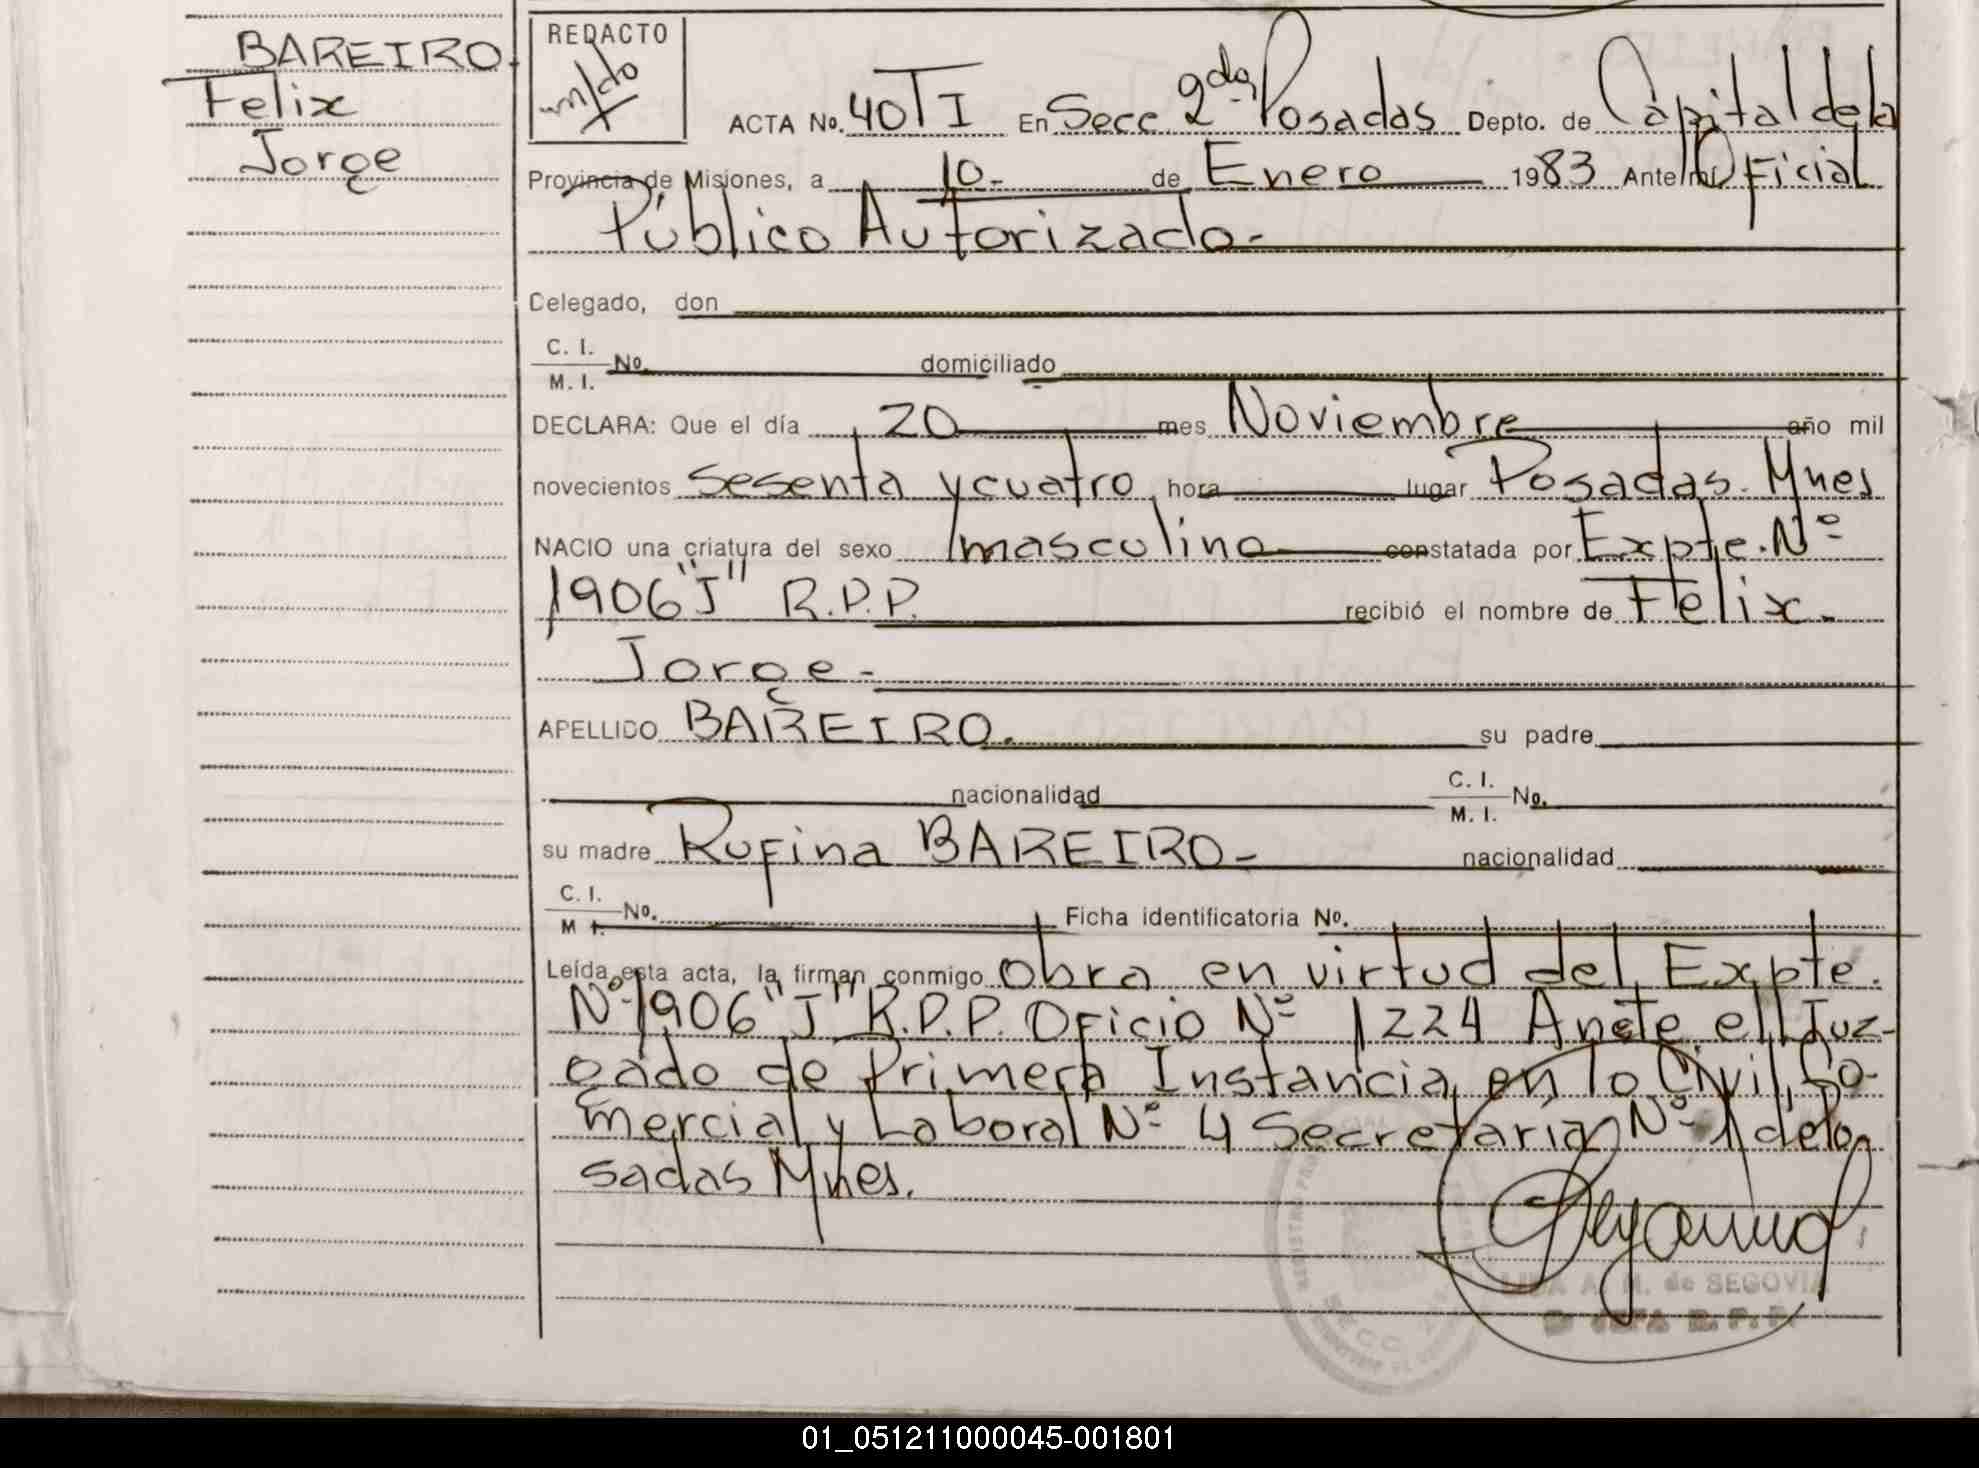 BAREIRO.
Felix
Jorge
REDACTO
ACTA No. 40 T I En Secc. 2da Posadas Depto. de Capital de la
Provincia de Misiones, a 10.- de Enero 1983 Ante mí Oficial
Público Autorizado.-
Delegado, don
C. I.
M. I. No. domiciliado
DECLARA: Que el día 20 mes Noviembre año mil
novecientos sesenta y cuatro hora lugar Posadas. Mnes
NACIO una criatura del sexo masculino constatada por Expte. Nº
1906 "J" R.P.P. recibió el nombre de Felix.
Jorge.-
APELLIDO BAREIRO. su padre
nacionalidad C. I. M. I. No.
su madre Rufina BAREIRO- nacionalidad
C. I. M I. No. Ficha identificatoria No.
Leída esta acta, la firman conmigo Obra en virtud del Expte.
Nº 1906 "J" R.P.P. Oficio Nº 1224 Anete el Juz-
gado de Primera Instancia en lo Civil, Co-
mercial y Laboral Nº 4 Secretaria Nº 1 de Po
sadas Mnes.
A. M. de SEGOVIA
JEFA R. P. P.
01_051211000045-001801